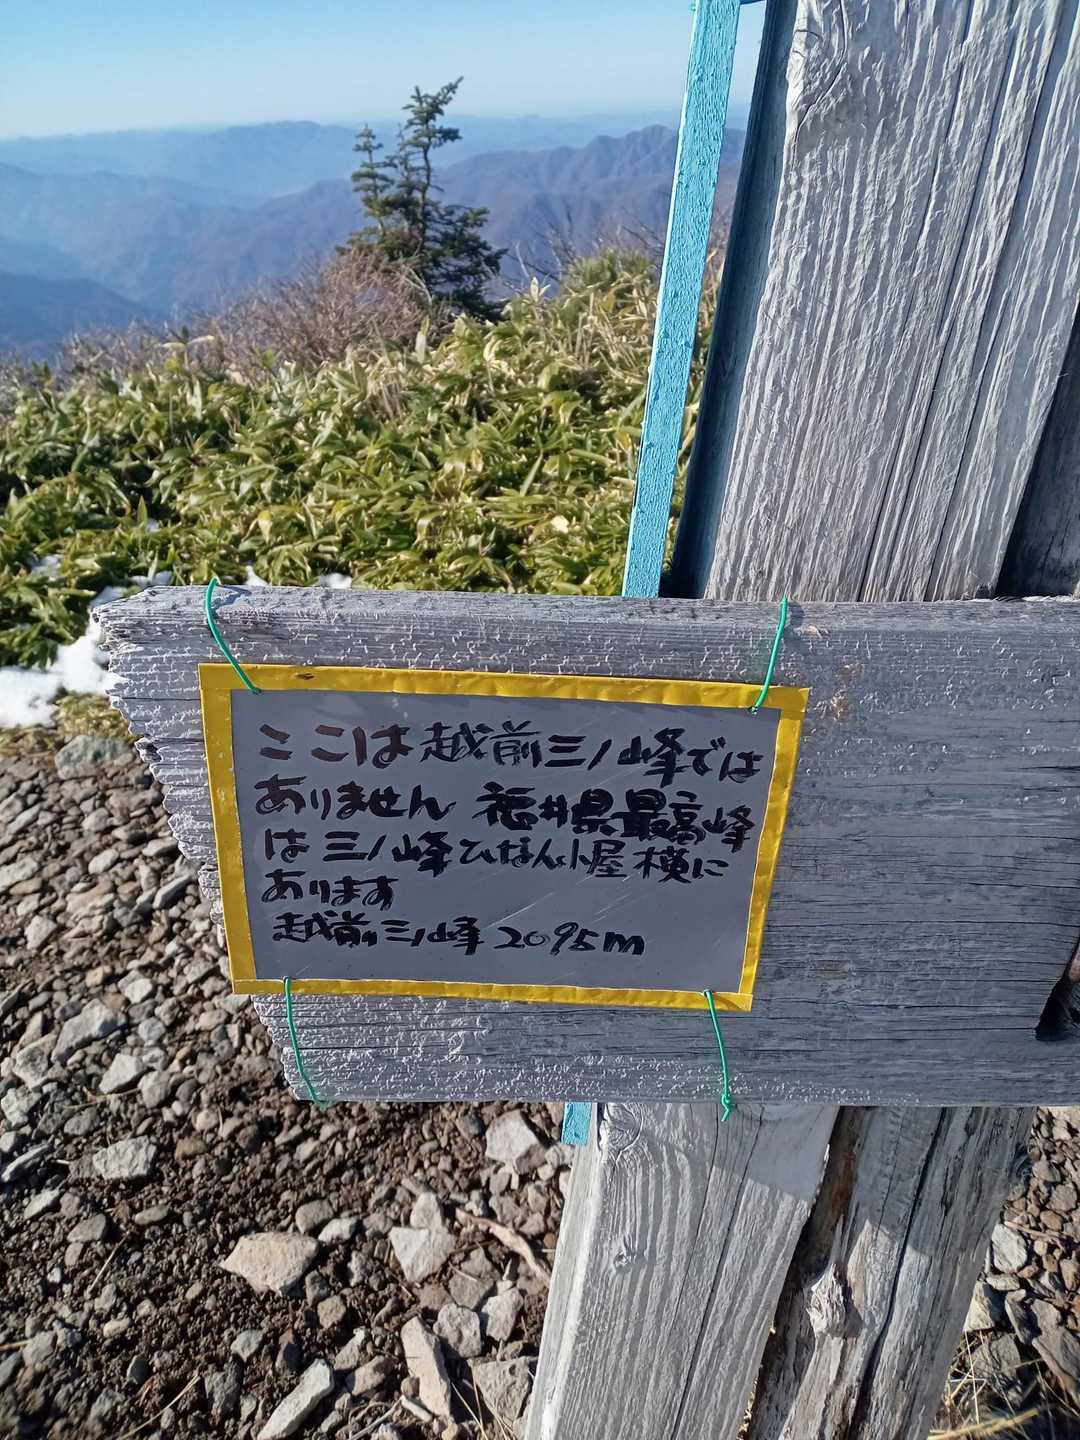 ここは越前三ノ峰では
ありません 福井県最高峰
は三ノ峰ひなん小屋横に
あります
越前三ノ峰 2095m